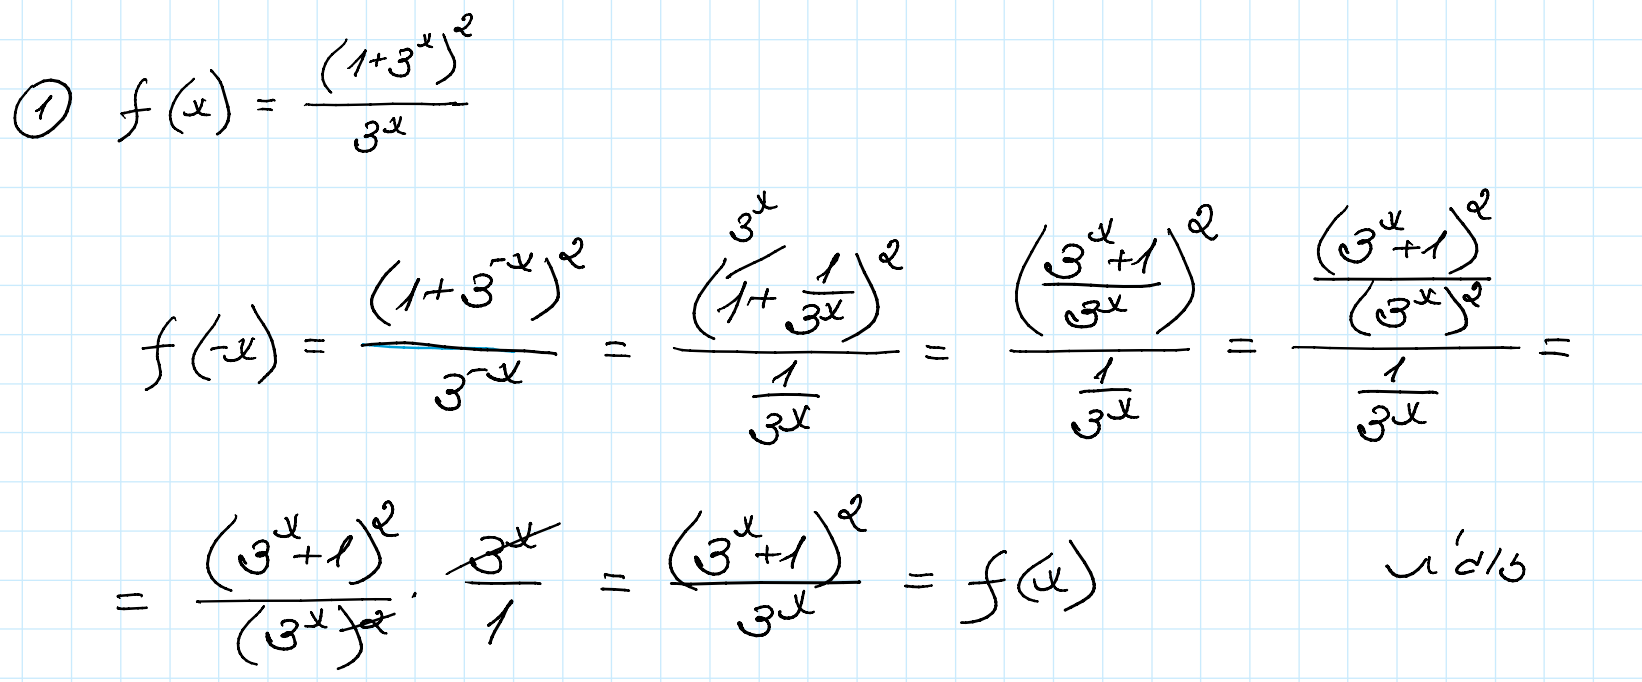 ① f(x) = (1+3^x)^2 / 3^x
f(-x) = (1+3^{-x})^2 / 3^{-x} = (1^{/3^x} + 1/3^x)^2 / (1/3^x) = ((3^x+1)/3^x)^2 / (1/3^x) = ((3^x+1)^2 / (3^x)^2) / (1/3^x) =
= (3^x+1)^2 / (3^x)^2 · 3^x / 1 = (3^x+1)^2 / 3^x = f(x)